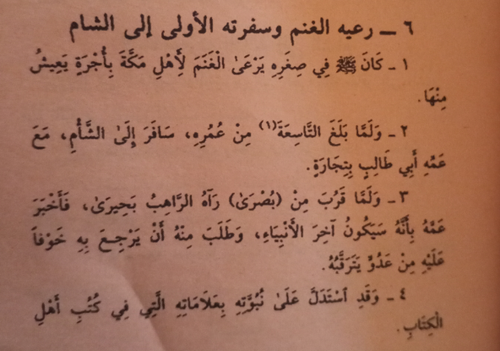 ٦ ــ رعيه الغنم وسفرته الأولى إلى الشام
١ ـ كَانَ ﷺ فِي صِغَرِهِ يَرْعَىٰ الْغَنَمَ لِأَهْلِ مَكَّةَ بِأُجْرَةٍ يَعِيشُ
مِنْهَا.
٢ ـ وَلَمَّا بَلَغَ التَّاسِعَةَ(١) مِنْ عُمُرِهِ، سَافَرَ إِلَىٰ الشَّأْمِ، مَعَ
عَمِّهِ أَبِي طَالِبٍ بِتِجَارَةٍ.
٣ ـ وَلَمَّا قَرُبَ مِنْ (بُصْرَىٰ) رَآهُ الرَّاهِبُ بَحِيرَىٰ، فَأَخْبَرَ
عَمَّهُ بِأَنَّهُ سَيَكُونُ آخِرَ الْأَنْبِيَاءِ، وَطَلَبَ مِنْهُ أَنْ يَرْجِعَ بِهِ خَوْفاً
عَلَيْهِ مِنْ عَدُوٍّ يَتَرَقَّبُهُ.
٤ ـ وَقَدِ ٱسْتَدَلَّ عَلَىٰ نُبُوَّتِهِ بِعَلَامَاتِهِ الَّتِي فِي كُتُبِ أَهْلِ
الْكِتَابِ.